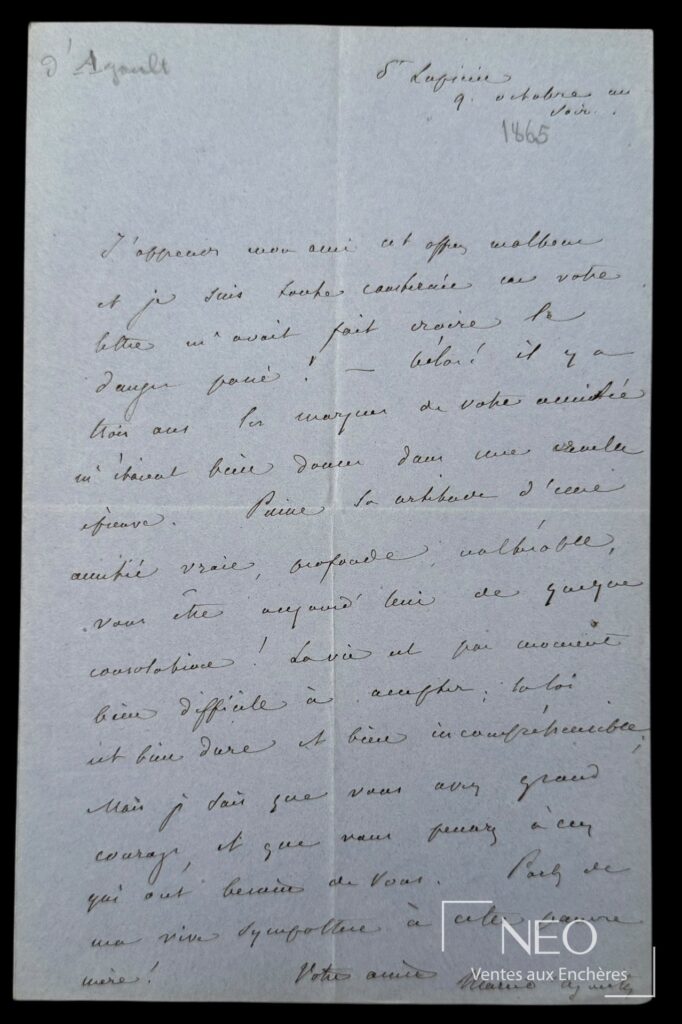 d'Agoult
St Lupicin
9. octobre au
soir.
1865
J'apprends mon ami cet affreux malheur
et je suis toute consternée car votre
lettre m'avait fait croire le
danger passé ! — hélas ! il y a
trois ans les marques de votre amitié
m'étaient bien douces dans une cruelle
épreuve. Puisse la certitude d'une
amitié vraie, profonde, inaltérable,
vous être aujourd'hui de quelque
consolation ! La vie est par moment
bien difficile à accepter; la loi
est bien dure et bien incompréhensible.
Mais je sais que vous avez grand
courage, et que vous pensez à ceux
qui ont besoin de vous. Parlez de
ma vive sympathie à cette pauvre
mère ! Votre amie Marie Agoult
NEO
Ventes aux Enchères